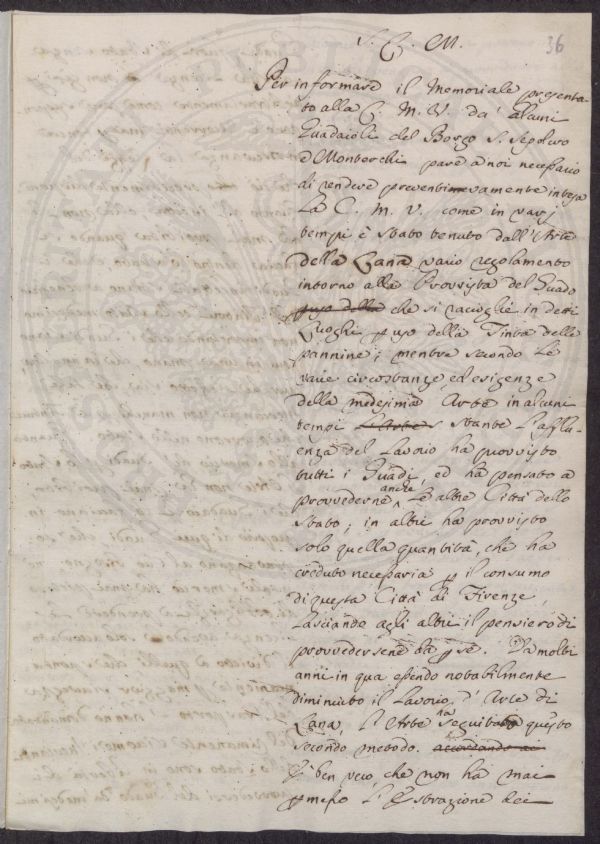 S. C. M.
36
Per informare il Memoriale presenta-
to alla C. M. V. da' alcuni
Guadaioli del Borgo S. Sepolcro
e Monterchi pare a noi necessario
di rendere preventivamente intesa
La C. M. V. come in varj
tempi è stato tenuto dall'Arte
della Lana vario regolamento
intorno alla Provvista del Guado
p uso della che si raccoglie in detti
Luoghi p uso della Tinta delle
pannine; mentre secondo Le
varie circostanze, ed esigenze
della medesima Arte in alcuni
tempi L'Arte stante L'afflu-
enza del Lavoro ha provvisto
tutti i Guadi, ed ha pensato a
provvederne anche Le altre Città dello
Stato; in altri ha provvisto
solo quella quantità, che ha
creduto necessaria p il consumo
di questa Città di Firenze,
Lasciando agli altri il pensiero di
provvedersene da p se. Da molti
anni in qua essendo notabilmente
diminuito il Lavoro, d'Arte di
Lana, L'Arte ha seguitato questo
secondo metodo. accordando ac
È ben vero, che non ha mai
pmesso L'Estrazione dei